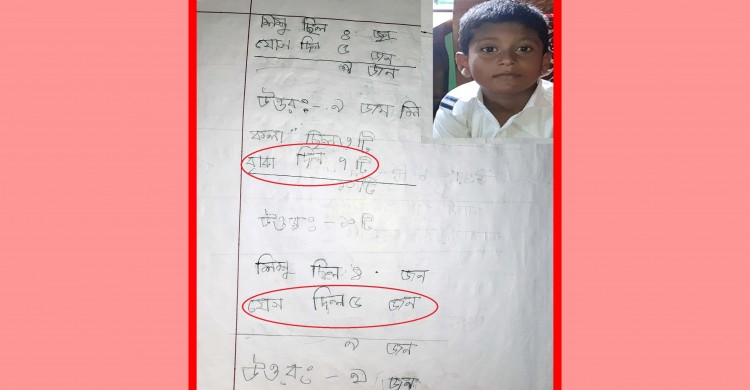 শিশু ছিল ৪ জন
যোগ দিল ৫ জন
৯ জন
উত্তরঃ- ৯ জন
কলা ছিল টি
বাবা দিল ৭ টি
টি
উত্তরঃ - টি
শিশু ছিল ৪ জন
যোগ দিল ৫ জন
৯ জন
উত্তরঃ - ৯ জন